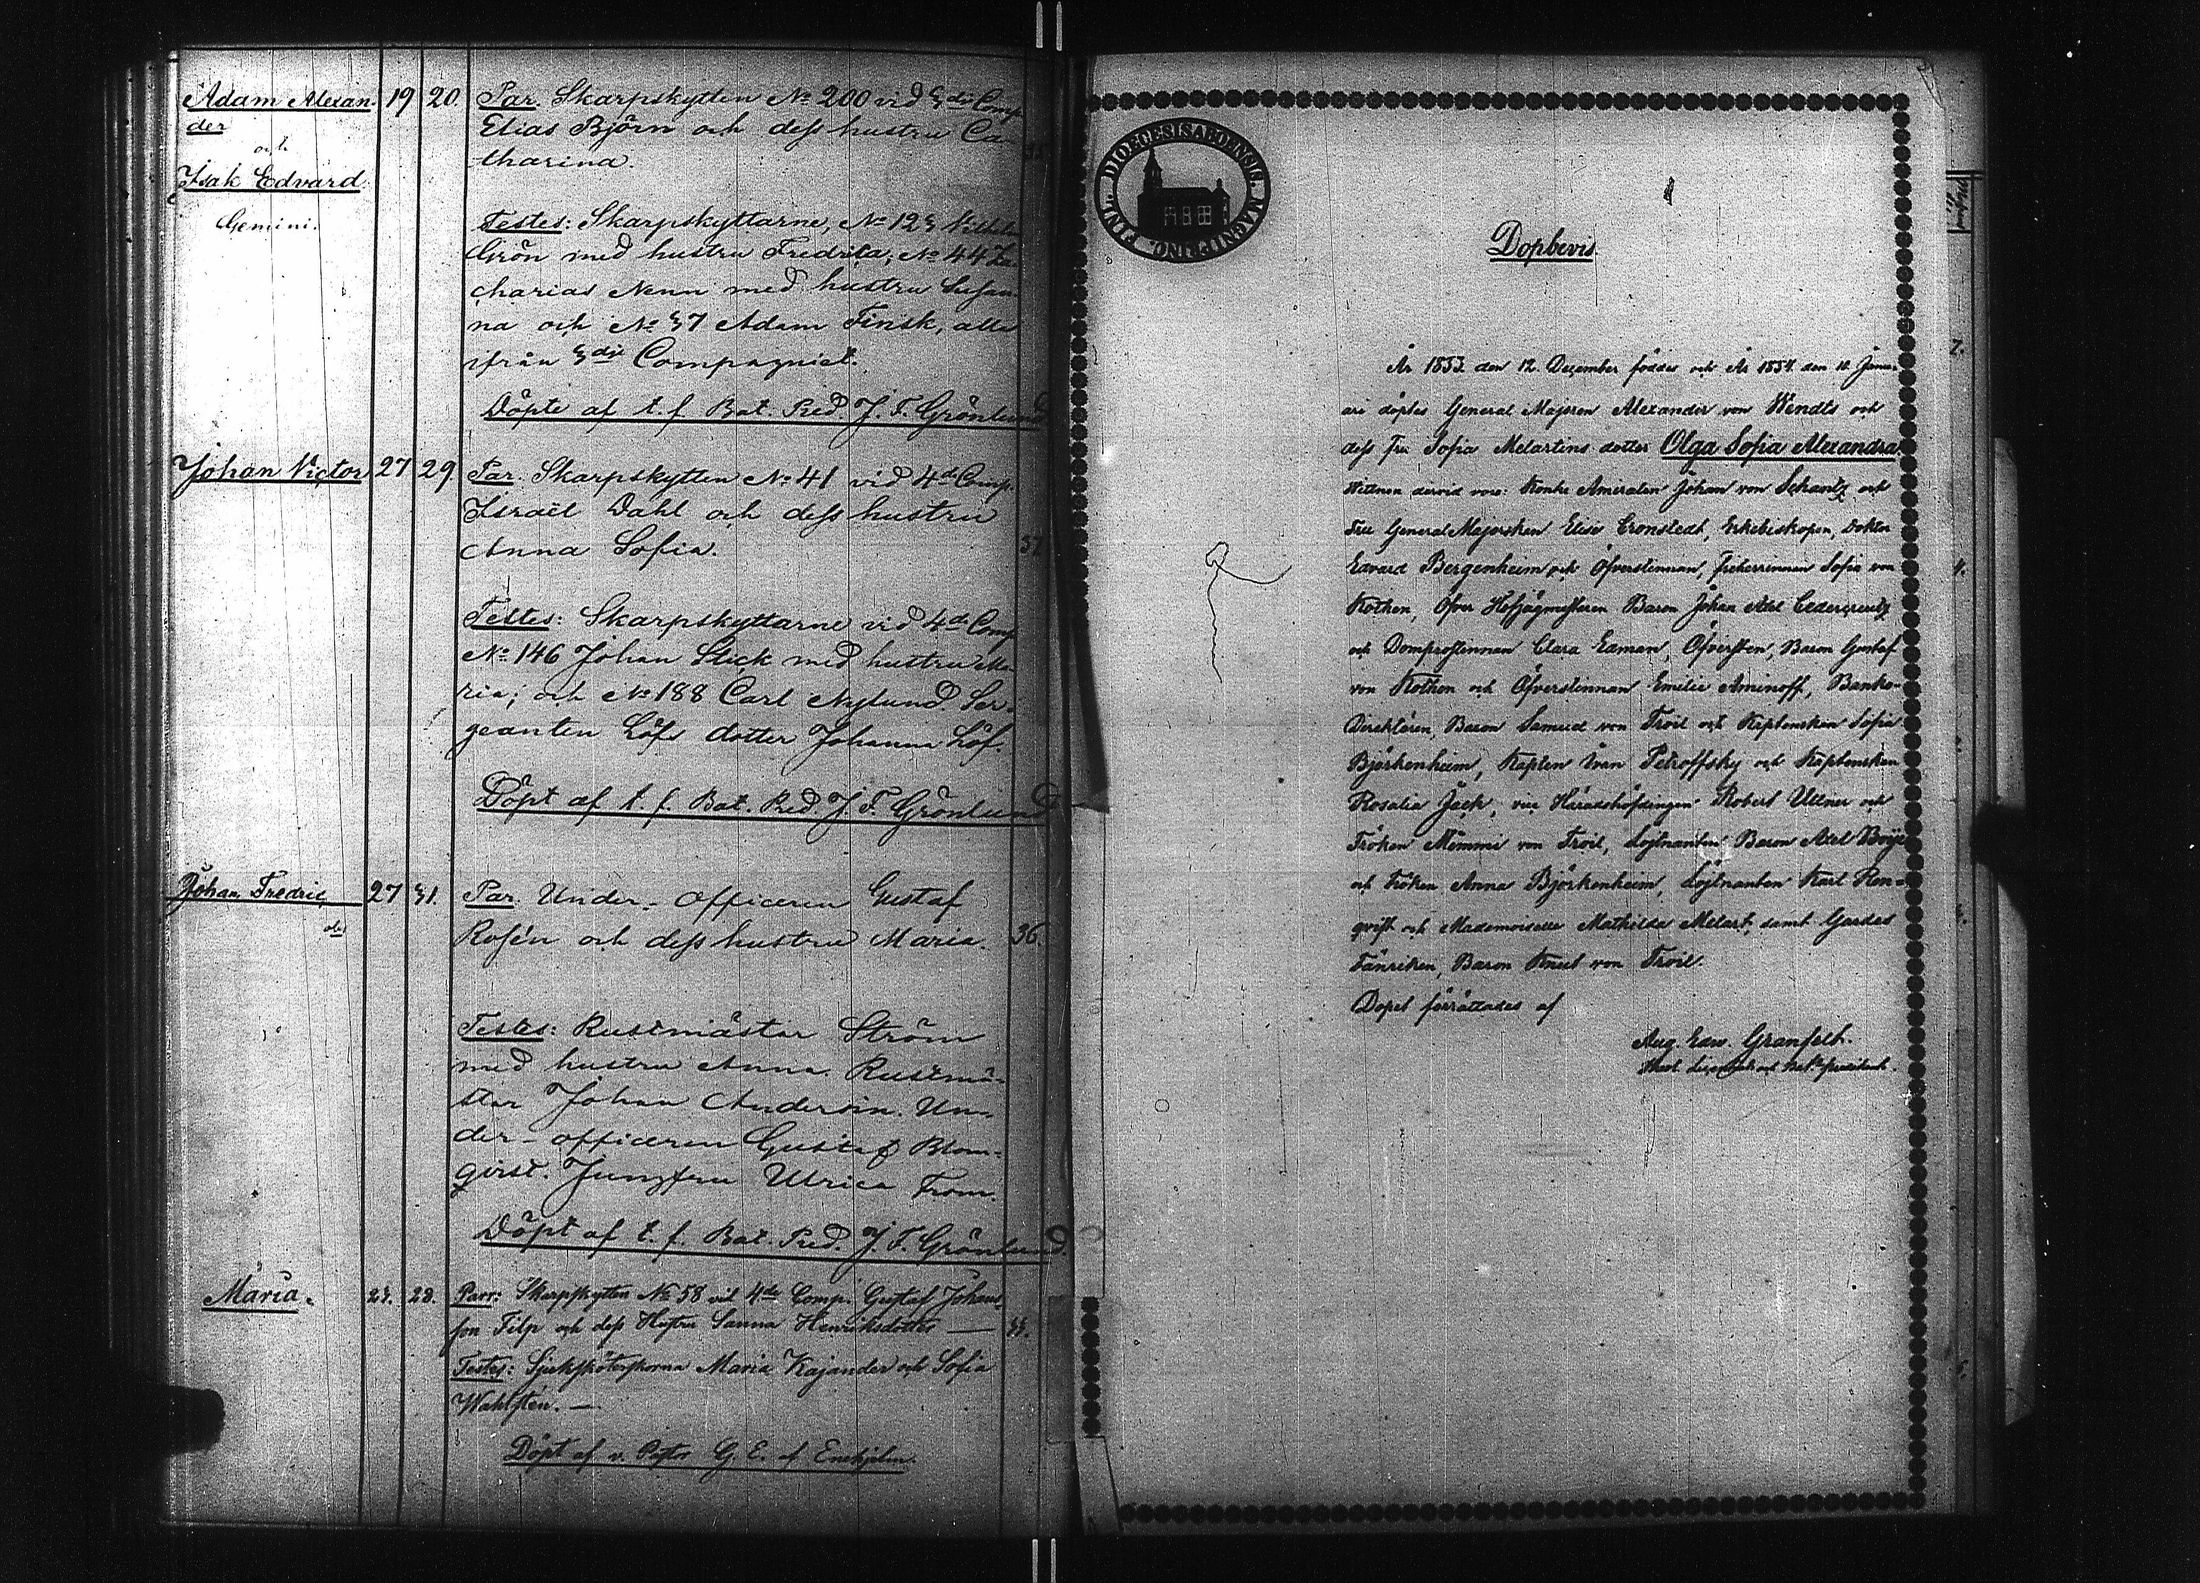 Adam Alexan-
der
och
Isak Edvard.
Gemini.
19 20. Par. Skarpskytten No 200 vid 3die Comp.
Elias Björn och dess hustru Ca-
tharina.
Testes: Skarpskyttarne, No 123 Vilhelm
Grön med hustru Fredrika, No 44 Za-
charias Nenn med hustru Susan-
na och No 37 Adam Finsk, alla
ifrån 3die Compagniet.
Döpte af t. f. Bat. Pred. J. F. Grönlund
Johan Victor 27 29. Par. Skarpskytten No 41 vid 4de Comp.
Israël Dahl och dess hustru
Anna Sofia. 37
Testes: Skarpskyttarne vid 4de Comp
No 146 Johan Stick med hustru Ma-
ria; och No 188 Carl Nylund Ser-
geanten Löfs dotter Johanna Löf.
Döpt af t. f. Bat. Pred. J. F. Grönlund
Johan Fredric 27 31. Par. Under-officeren Gustaf
Rosén och dess hustru Maria. 36.
Testes: Rustmästar Ström
med hustru Anna. Rustmä-
star Johan Andersin. Un-
der-officeren Gustaf Blom-
qvist. Jungfru Ulrica From.
Döpt af t. f. Bat. Pred. J. F. Grönlund.
Maria. 23. 23. Parr: Skarpskytten No 58 vid 4de Comp. Gustaf Johans-
son Filp och dess Hustru Sanna Henriksdotter — 33.
Testes: Sjuksköterskorna Maria Kajander och Sofia
Wahlstén. —
Döpt af v. Pastor G. E. af Enehjelm.
DIOECESIS ABOENSIS. MAGNI DUC. FINL.
Dopbevis.
År 1853. den 12. December föddes och År 1854 den 10. Janu-
ari döptes General Majoren Alexander von Wendts och
dess fru Sofia Melartins dotter Olga Sofia Alexandra.
Vittnen dervid voro: Kontre Amiralen Johan von Schantz och
Fru General Majorskan Elise Cronstedt, Erkebiskopen, Doktor
Edvard Bergenheim och Öfverstinnan, Friherrinnan Sofia von
Kothen, Öfver Hofjägmästaren Baron Johan Axel Cedercreutz
och Domprostinnan Clara Edman, Öfversten, Baron Gustaf
von Kothen och Öfverstinnan Emilie Aminoff, Banko-
Direktören, Baron Samuel von Troil och Kaptenskan Sofia
Björkenheim, Kapten Ivan Petroffsky och Kaptenskan
Rosalia Jack, vice Häradshöfdingen Robert Ullner och
Fröken Mimmi von Troil, Löjtnanten Baron Axel Boije
och Fröken Anna Björkenheim, Löjtnanten Karl Ren-
qvist och Mademoiselle Mathilda Melart, samt Gardes
Fänriken, Baron Knut von Troil.
Dopet förrättades af
Aug. Edv. Granfelt.